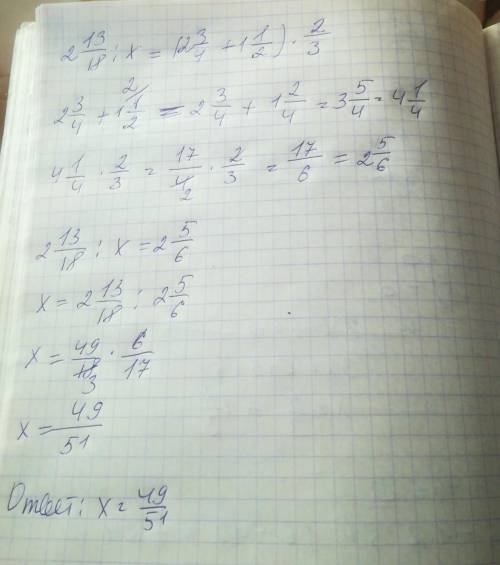 2 13/18 : x = (2 3/4 + 1 1/2) · 2/3
2 3/4 + 1 1/2 = 2 3/4 + 1 2/4 = 3 5/4 = 4 1/4
4 1/4 · 2/3 = 17/4 · 2/3 = 17/6 = 2 5/6
2 13/18 : x = 2 5/6
x = 2 13/18 : 2 5/6
x = 49/18 · 6/17
x = 49/51
Ответ: x = 49/51